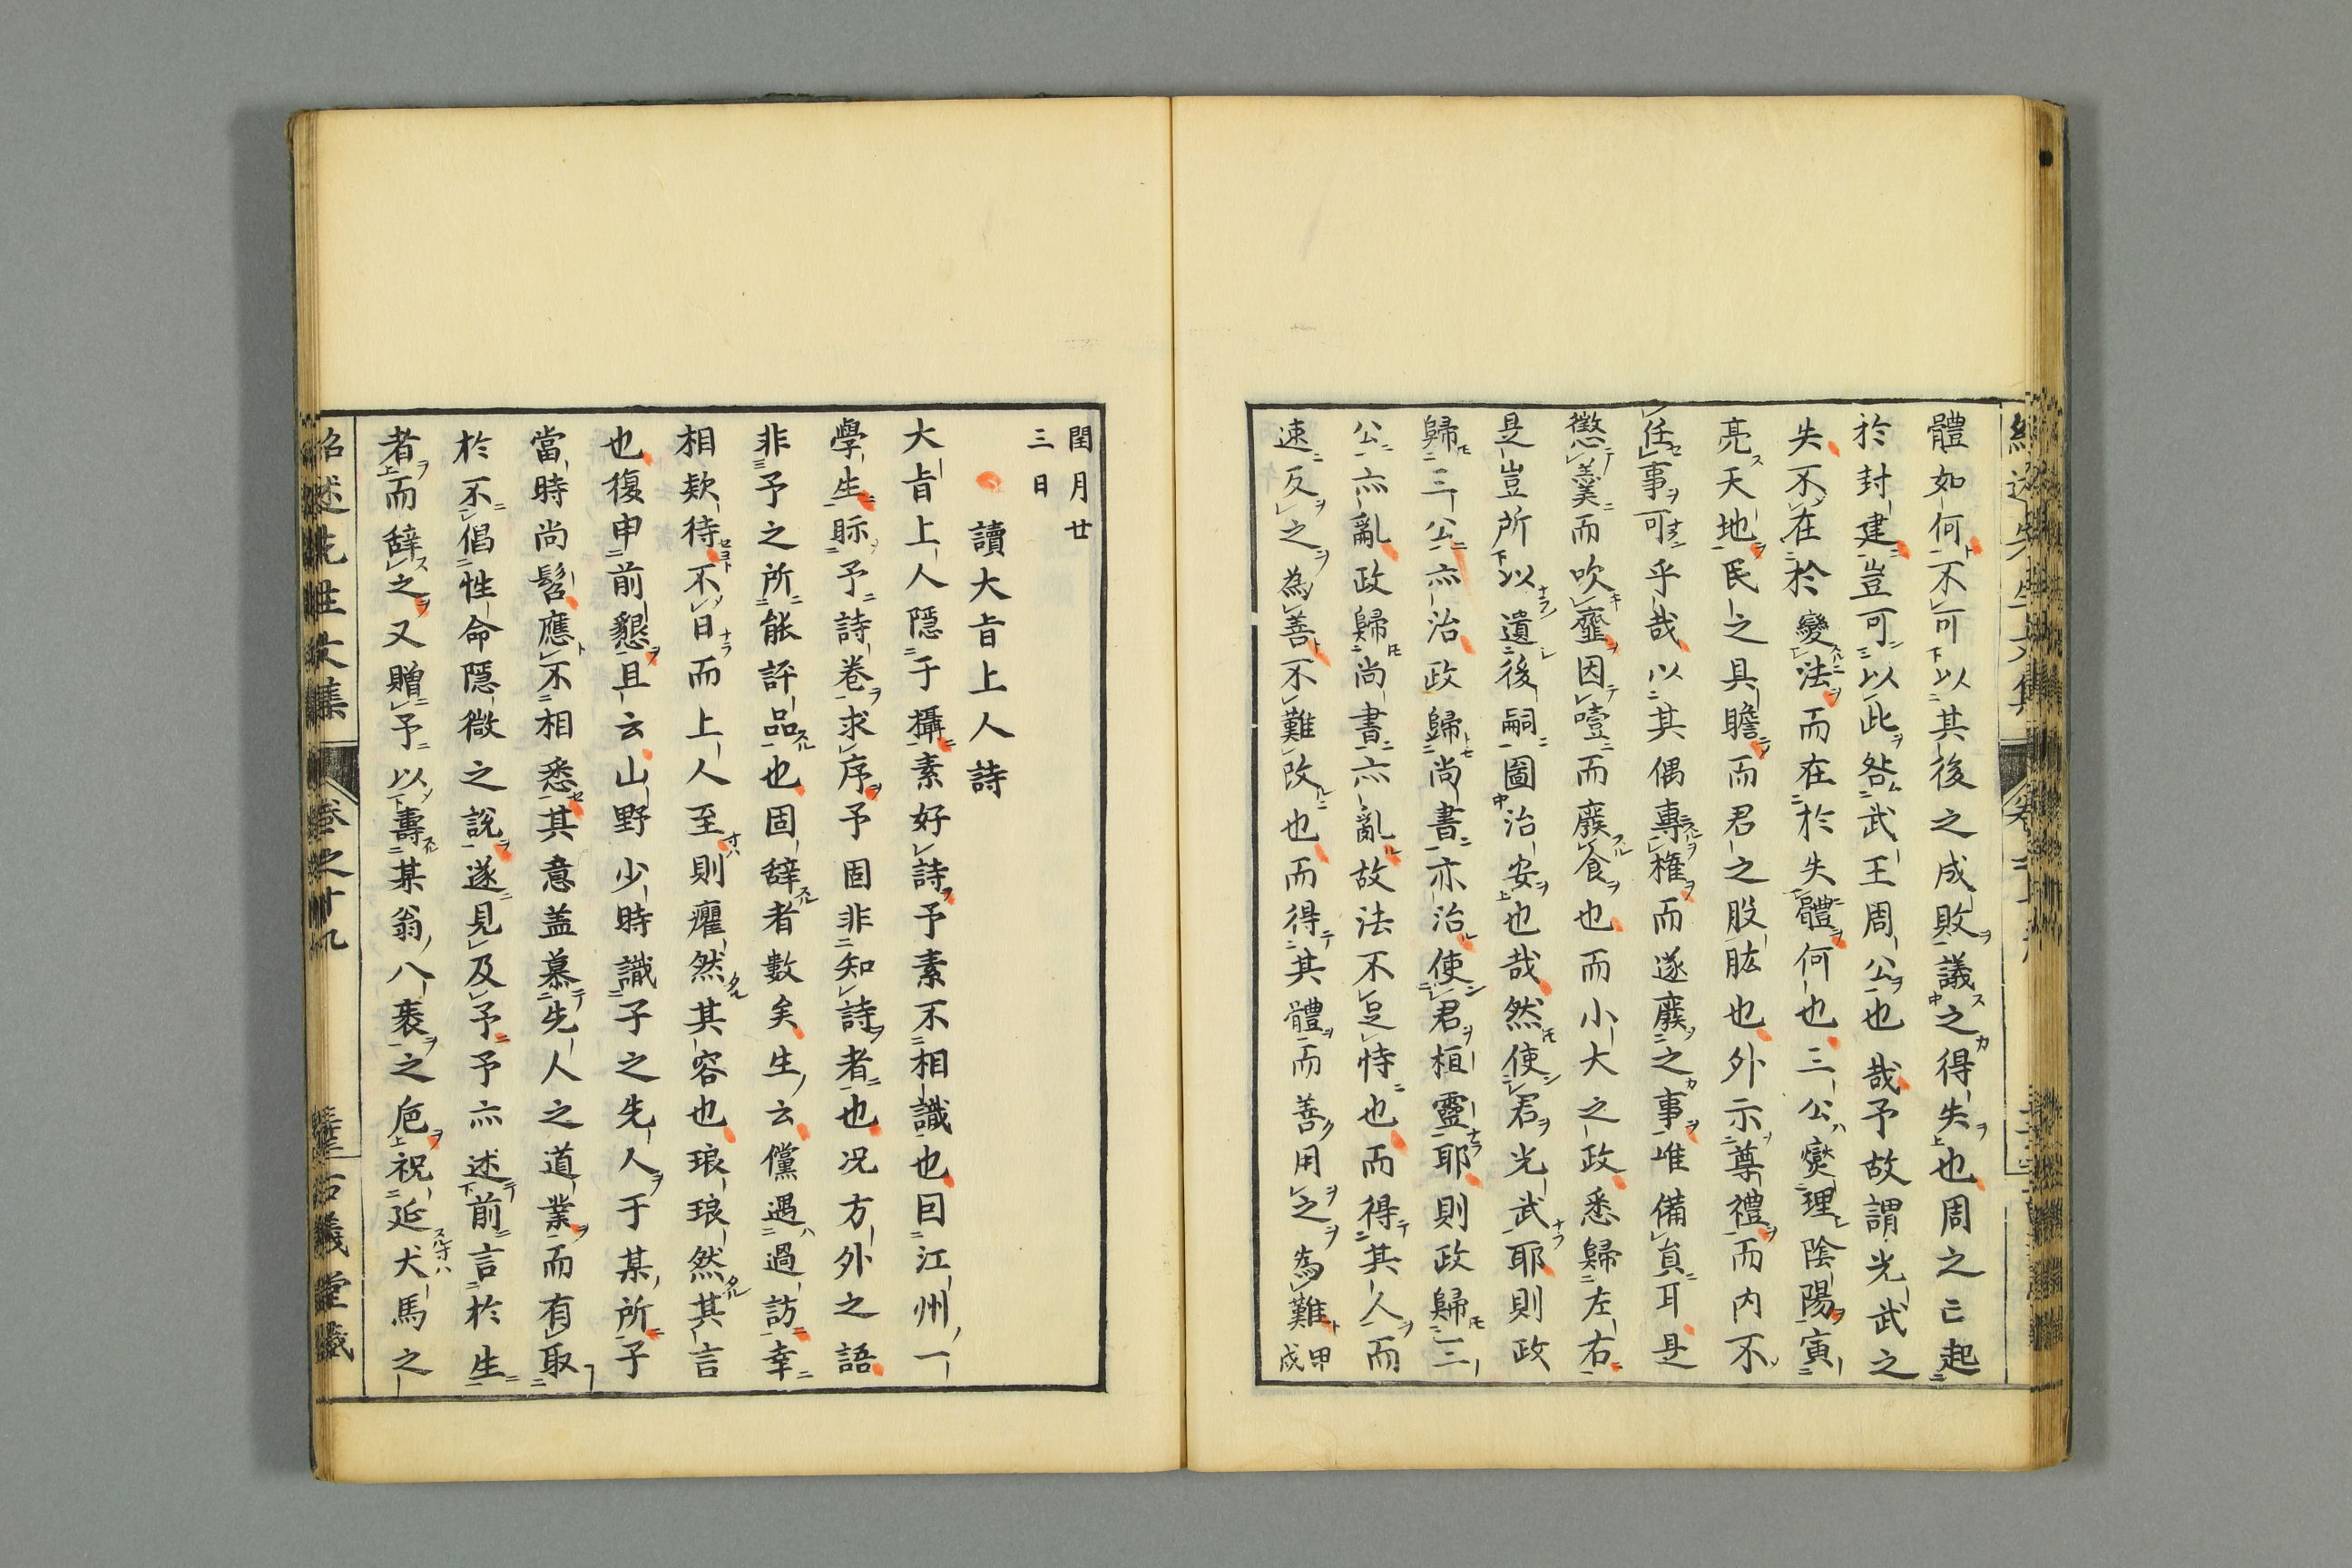 體如何不可以其後之成敗議之得失也周之亡起
於封建豈可以此咎武王周公也哉予故謂光武之
失不在於變法而在於失體何也三公燮理陰陽寅
亮天地民之具瞻而君之股肱也外示尊禮而内不
任事可乎哉以其偶專權而遂廢之事唯備員耳是
懲羹而吹虀因噎而廢食也而小大之政悉歸左右
是豈所以遺後嗣圖治安也哉然使君光武耶則政
歸三公亦治政歸尚書亦治使君桓靈耶則政歸三
公亦亂政歸尚書亦亂故法不足恃也而得其人而
速反之為善不難改也而得其體而善用之為難甲戌
閏月廿
三日
讀大旨上人詩
大旨上人隱于攝素好詩予素不相識也囙江州一
學生眎予詩卷求序予固非知詩者也况方外之語
非予之所能評品也固辭者數矣生云儻遇過訪幸
相欵待不日而上人至則癯然其容也琅琅然其言
也復申前懇且云山野少時識子之先人于某所子
當時尚髫應不相悉其意盖慕先人之道業而有取
於不倡性命隱微之說遂見及予予亦述前言於生
者而辭之又贈予以壽某翁八袠之巵祝延犬馬之
紹述先生文集 卷之十九 古義堂藏